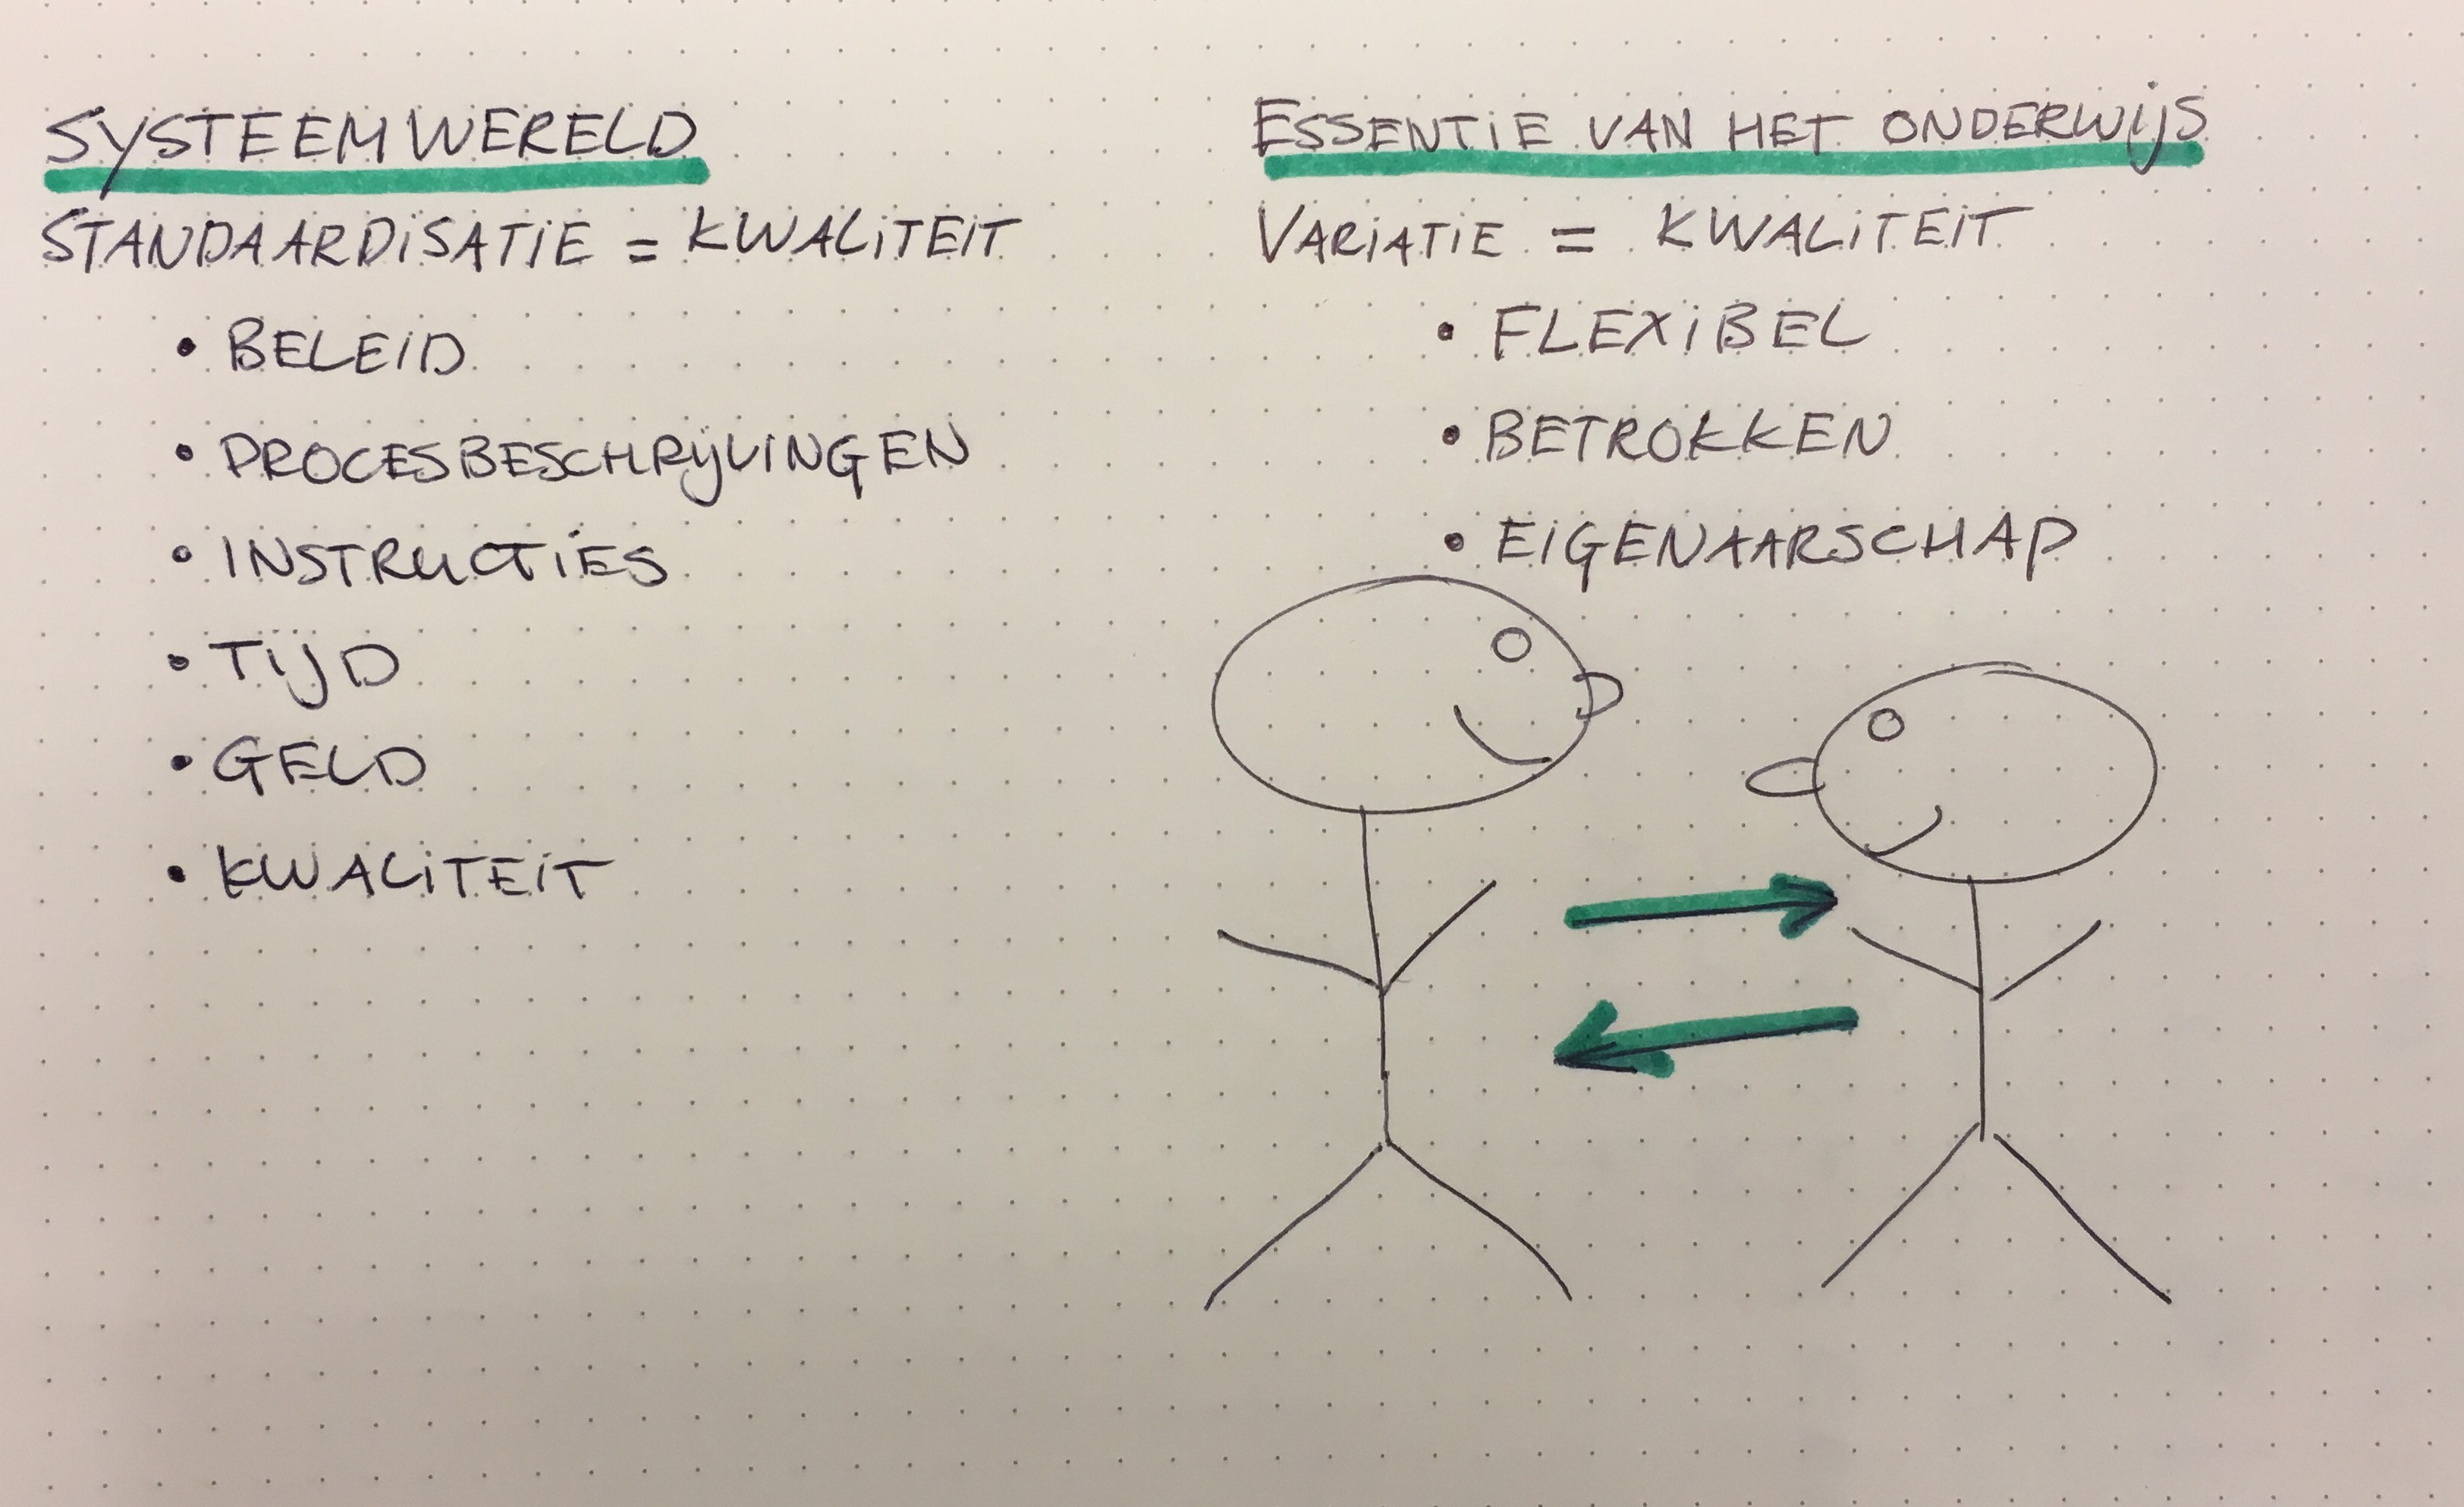 SYSTEEMWERELD
STANDAARDISATIE = KWALITEIT
• BELEID
• PROCESBESCHRIJVINGEN
• INSTRUCTIES
• TIJD
• GELD
• KWALITEIT
ESSENTIE VAN HET ONDERWIJS
VARIATIE = KWALITEIT
• FLEXIBEL
• BETROKKEN
• EIGENAARSCHAP